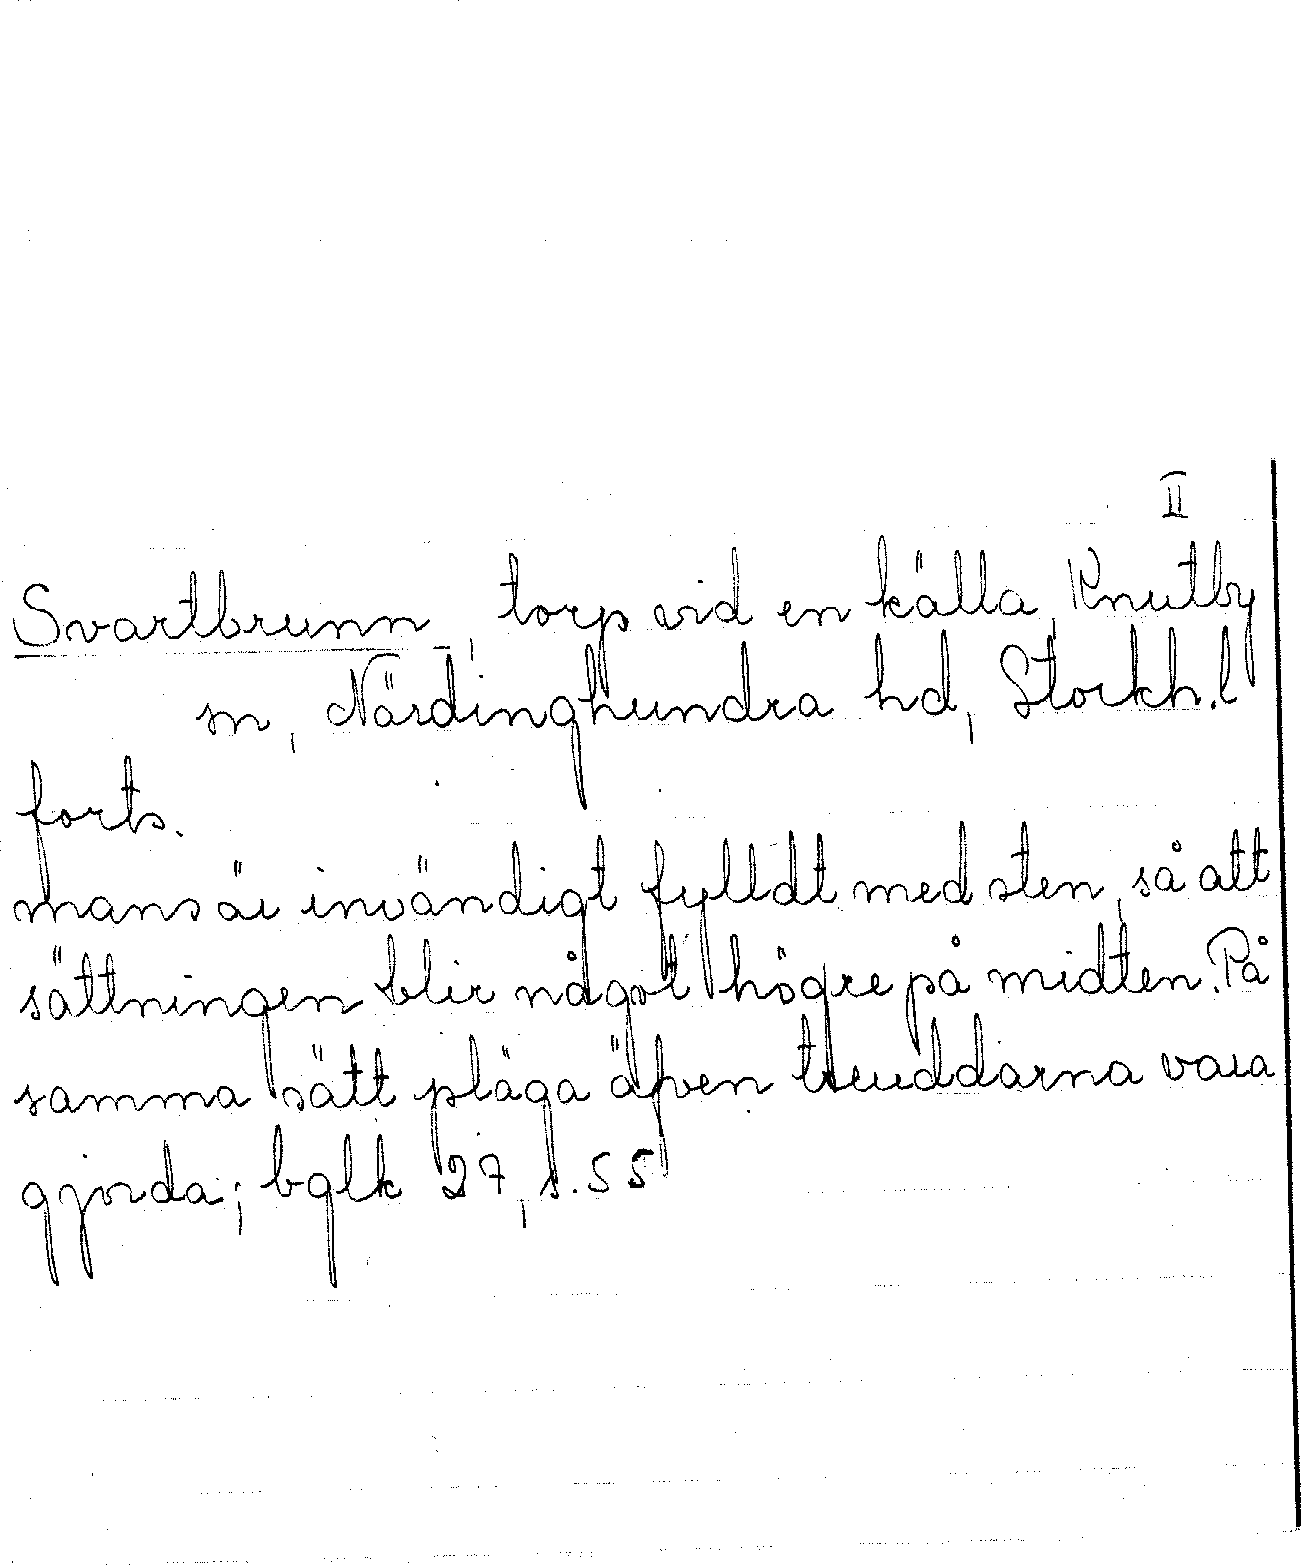 II
Svartbrunn, torp vid en källa, Knutby
sn, Närdinghundra hd, Stockh.l
forts.
mans är invändigt fylldt med sten, så att
sättningen blir något högre på midten. På
samma sätt pläga äfven treuddarna vara
gjorda; bglk 27, s. 55